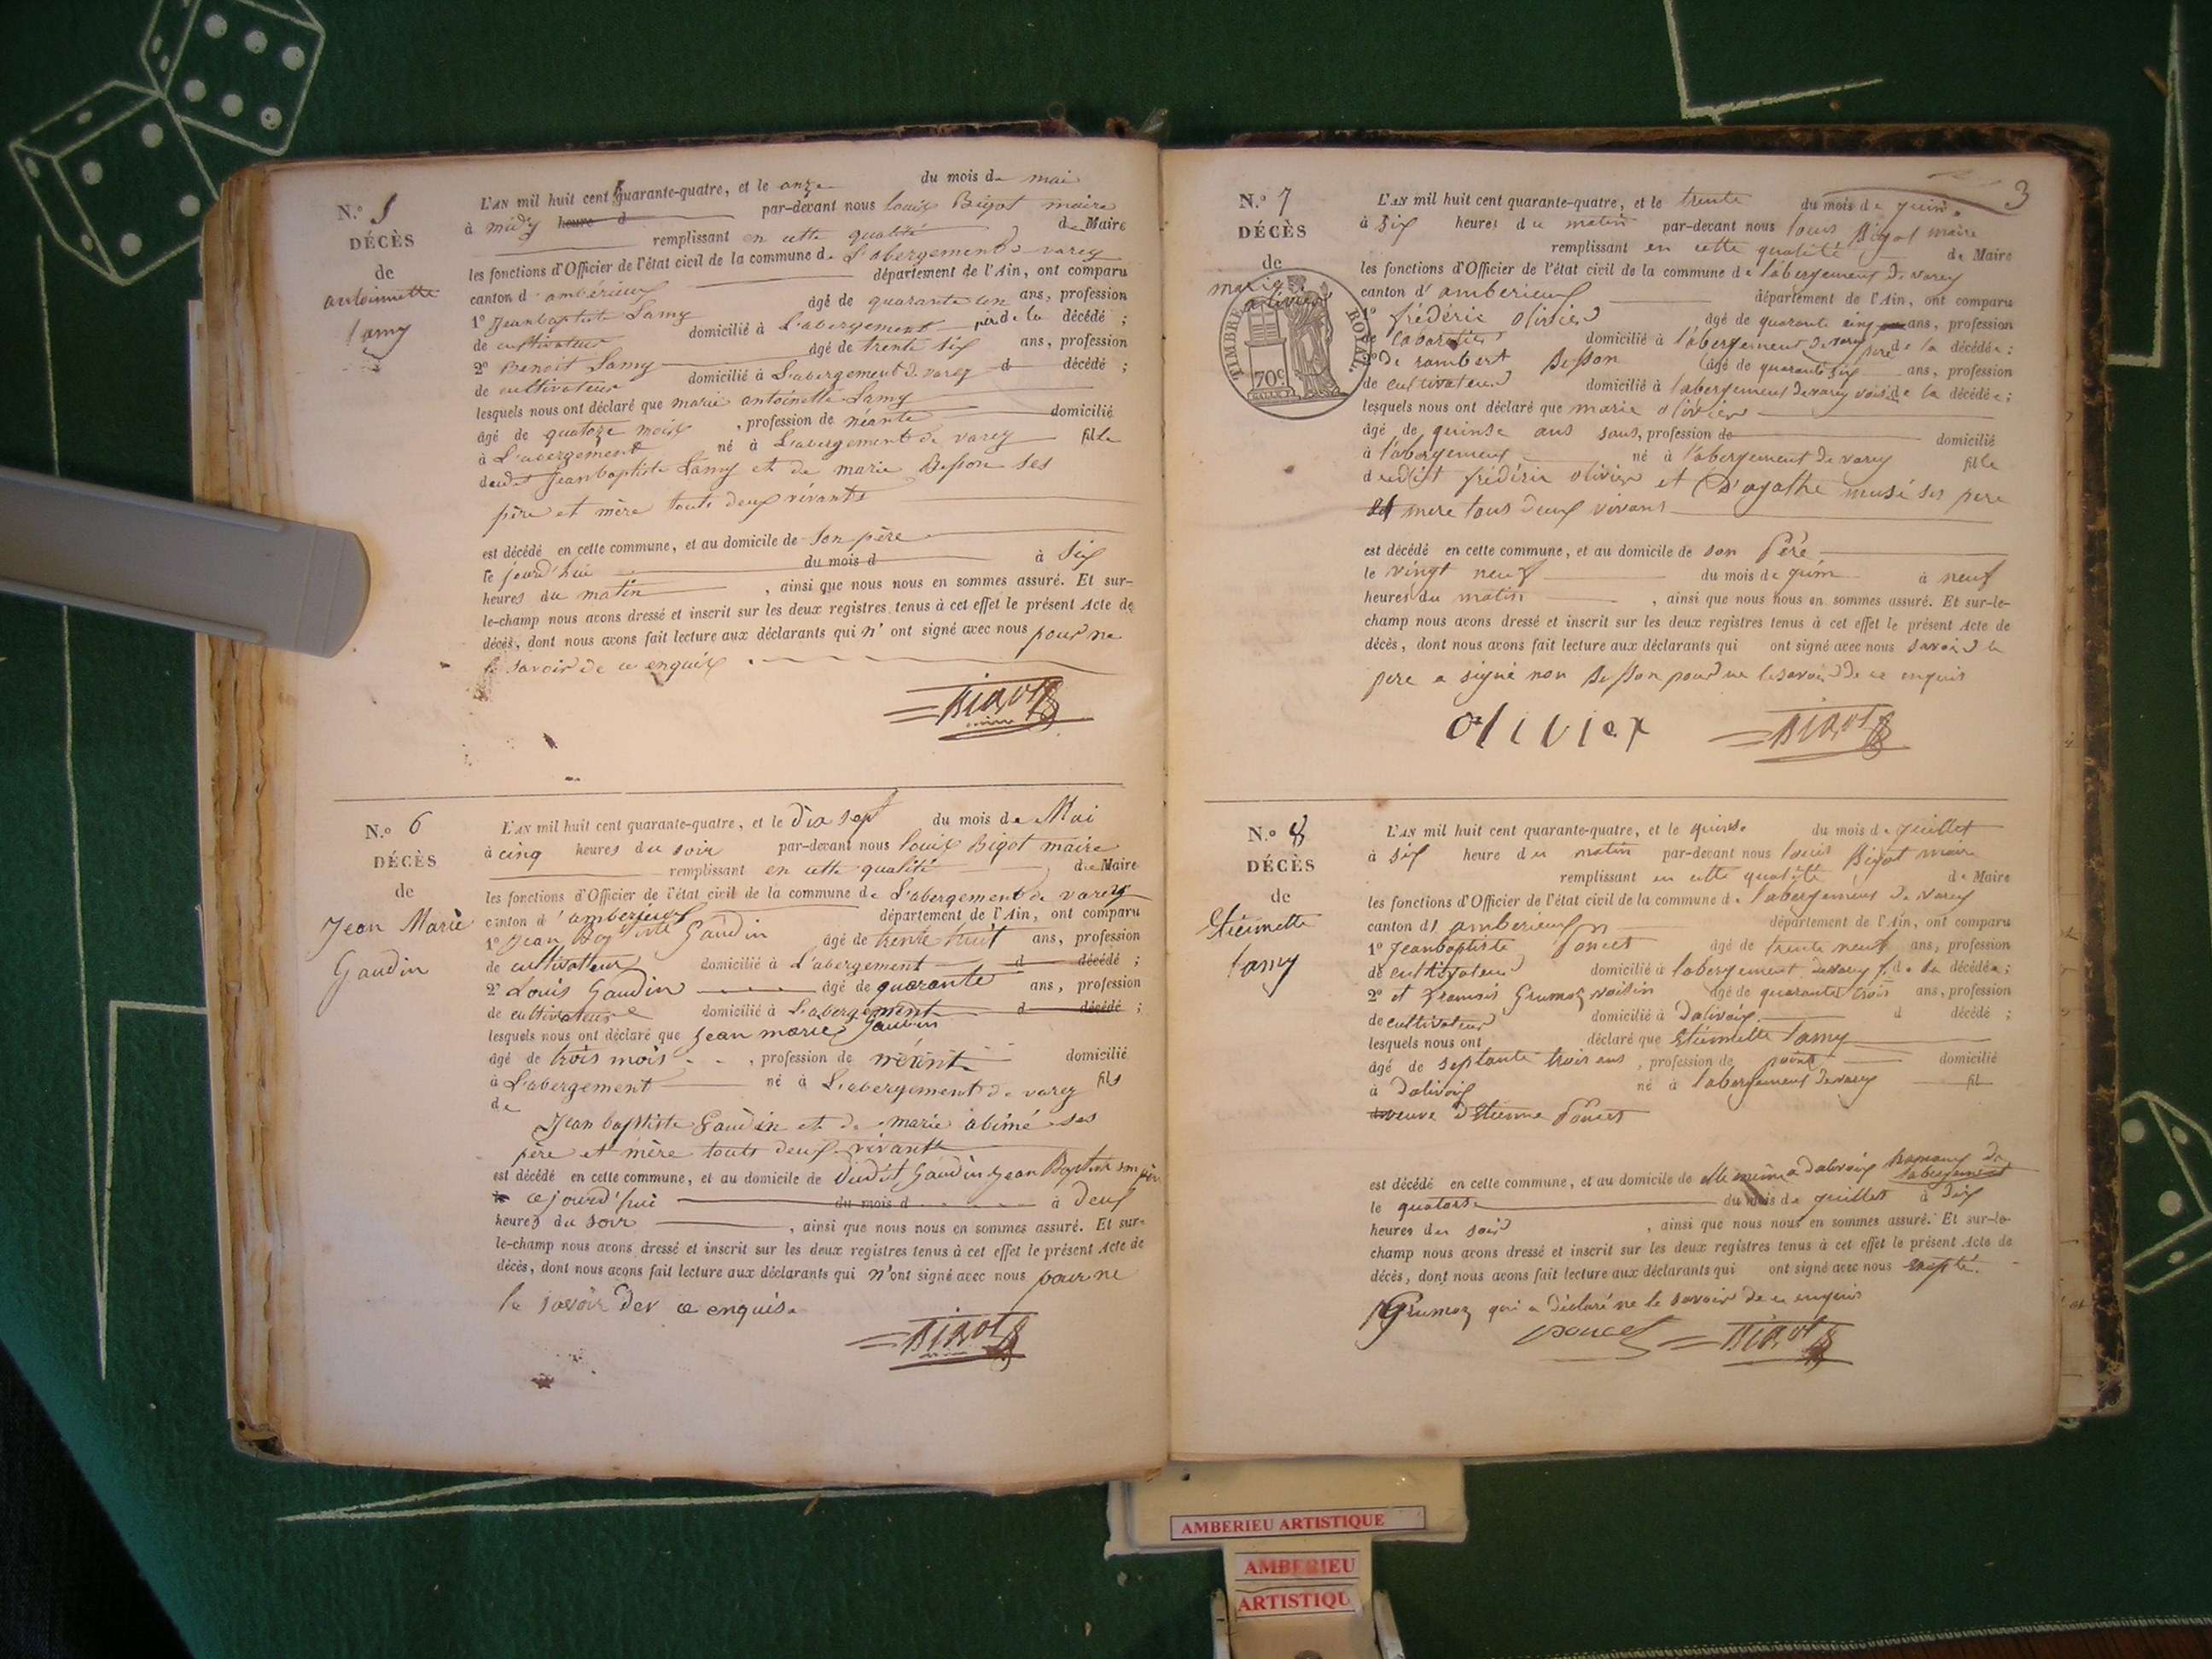 N.º 5
DÉCÈS
de
antoinette
Lamy
L'AN mil huit cent quarante-quatre, et le onze du mois de mai
à midy heure d par-devant nous louis Bigot maire
remplissant en cette qualité de Maire
les fonctions d'Officier de l'état civil de la commune de L'abergement de varey
canton d'ambérieux département de l'Ain, ont comparu
1º Jean baptiste Lamy âgé de quarante un ans, profession
de cultivateur domicilié à L'abergement père de la décédé ;
2º Benoit Lamy âgé de trente six ans, profession
de cultivateur domicilié à L'abergement de varey d décédé ;
lesquels nous ont déclaré que marie antoinette Lamy
âgé de quatoze mois, profession de néante domicilié
à L'abergement né à L'abergement de varey fille
dudit Jean baptiste Lamy et de marie Besson ses
père et mère touts deux vivants
est décédé en cette commune, et au domicile de son père
le jourd'hui du mois d à six
heures du matin, ainsi que nous nous en sommes assuré. Et sur-
le-champ nous avons dressé et inscrit sur les deux registres tenus à cet effet le présent Acte de
décès, dont nous avons fait lecture aux déclarants qui n'ont signé avec nous pour ne
le savoir de ce enquis
Bigot
N.º 6
DÉCÈS
de
Jean Marie
Gaudin
L'AN mil huit cent quarante-quatre, et le dix sept du mois de Mai
à cinq heures du soir par-devant nous louis Bigot maire
remplissant en cette qualité de Maire
les fonctions d'Officier de l'état civil de la commune de L'abergement de varey
canton d'amberieux département de l'Ain, ont comparu
1º Jean Baptiste Gaudin âgé de trente huit ans, profession
de cultivateur domicilié à L'abergement d décédé ;
2º Louis Gaudin âgé de quarante ans, profession
de cultivateur domicilié à L'abergement d décédé ;
lesquels nous ont déclaré que jean marie Gaudin
âgé de trois mois, profession de domicilié
à L'abergement né à L'abergement de varey fils
de
Jean baptiste Gaudin et de marie abimé ses
père et mère touts deux vivants
est décédé en cette commune, et au domicile de dudit Gaudin jean Baptiste son père
le ce jourd'hui du mois d à deux
heures du soir, ainsi que nous nous en sommes assuré. Et sur-
le-champ nous avons dressé et inscrit sur les deux registres tenus à cet effet le présent Acte de
décès, dont nous avons fait lecture aux déclarants qui n'ont signé avec nous pour ne
le savoir der ce enquis
Bigot
3
N.º 7
DÉCÈS
de
marie
olivier
TIMBRE ROYAL
70 c.
L'AN mil huit cent quarante-quatre, et le trente du mois de juin
à six heures du matin par-devant nous louis Bigot maire
remplissant en cette qualité de Maire
les fonctions d'Officier de l'état civil de la commune de l'abergement de varey
canton d'amberieux département de l'Ain, ont comparu
1º frédéric olivier âgé de quarante cinq ans, profession
de cabaretier domicilié à l'abergement de varey père de la décédée ;
2º de rambert Besson âgé de quarante six ans, profession
de cultivateur domicilié à l'abergement de varey voisin de la décédée ;
lesquels nous ont déclaré que marie olivier
âgé de quinse ans sans, profession de domicilié
à l'abergement né à l'abergement de varey fille
dudist frédéric olivier et d'agathe musé ses pere
et mere tous deux vivans
est décédé en cette commune, et au domicile de son Père
le vingt neuf du mois de juin à neuf
heures du matin, ainsi que nous nous en sommes assuré. Et sur-le-
champ nous avons dressé et inscrit sur les deux registres tenus à cet effet le présent Acte de
décès, dont nous avons fait lecture aux déclarants qui ont signé avec nous savoir le
pere a signé non Besson pour ne le savoir de ce enquis
olivier Bigot
N.º 8
DÉCÈS
de
Etiennette
Lamy
L'AN mil huit cent quarante-quatre, et le quinse du mois de juillet
à six heure du matin par-devant nous louis Bigot maire
remplissant en cette qualité de Maire
les fonctions d'Officier de l'état civil de la commune de l'abergement de varey
canton d'amberieux département de l'Ain, ont comparu
1º Jean baptiste Poncet âgé de trente neuf ans, profession
de cultivateur domicilié à l'abergement de varey f. de la décédée ;
2º et francois Grumoz voisin âgé de quarante trois ans, profession
de cultivateur domicilié à Dalivoix d décédé ;
lesquels nous ont déclaré que Etiennette Lamy
âgé de septante trois ans, profession de point domicilié
à Dalivoix né à l'abergement de varey fil
veuve d'Etienne Poncet
est décédé en cette commune, et au domicile de elle même a dalivoix hameau de l'abergement
le quatorse du mois de juillet à dix
heures du soir, ainsi que nous nous en sommes assuré. Et sur-le-
champ nous avons dressé et inscrit sur les deux registres tenus à cet effet le présent Acte de
décès, dont nous avons fait lecture aux déclarants qui ont signé avec nous exepté
Grumoz qui a déclaré ne le savoir de ce enquis
poncet Bigot
AMBERIEU ARTISTIQUE
AMBERIEU
ARTISTIQU